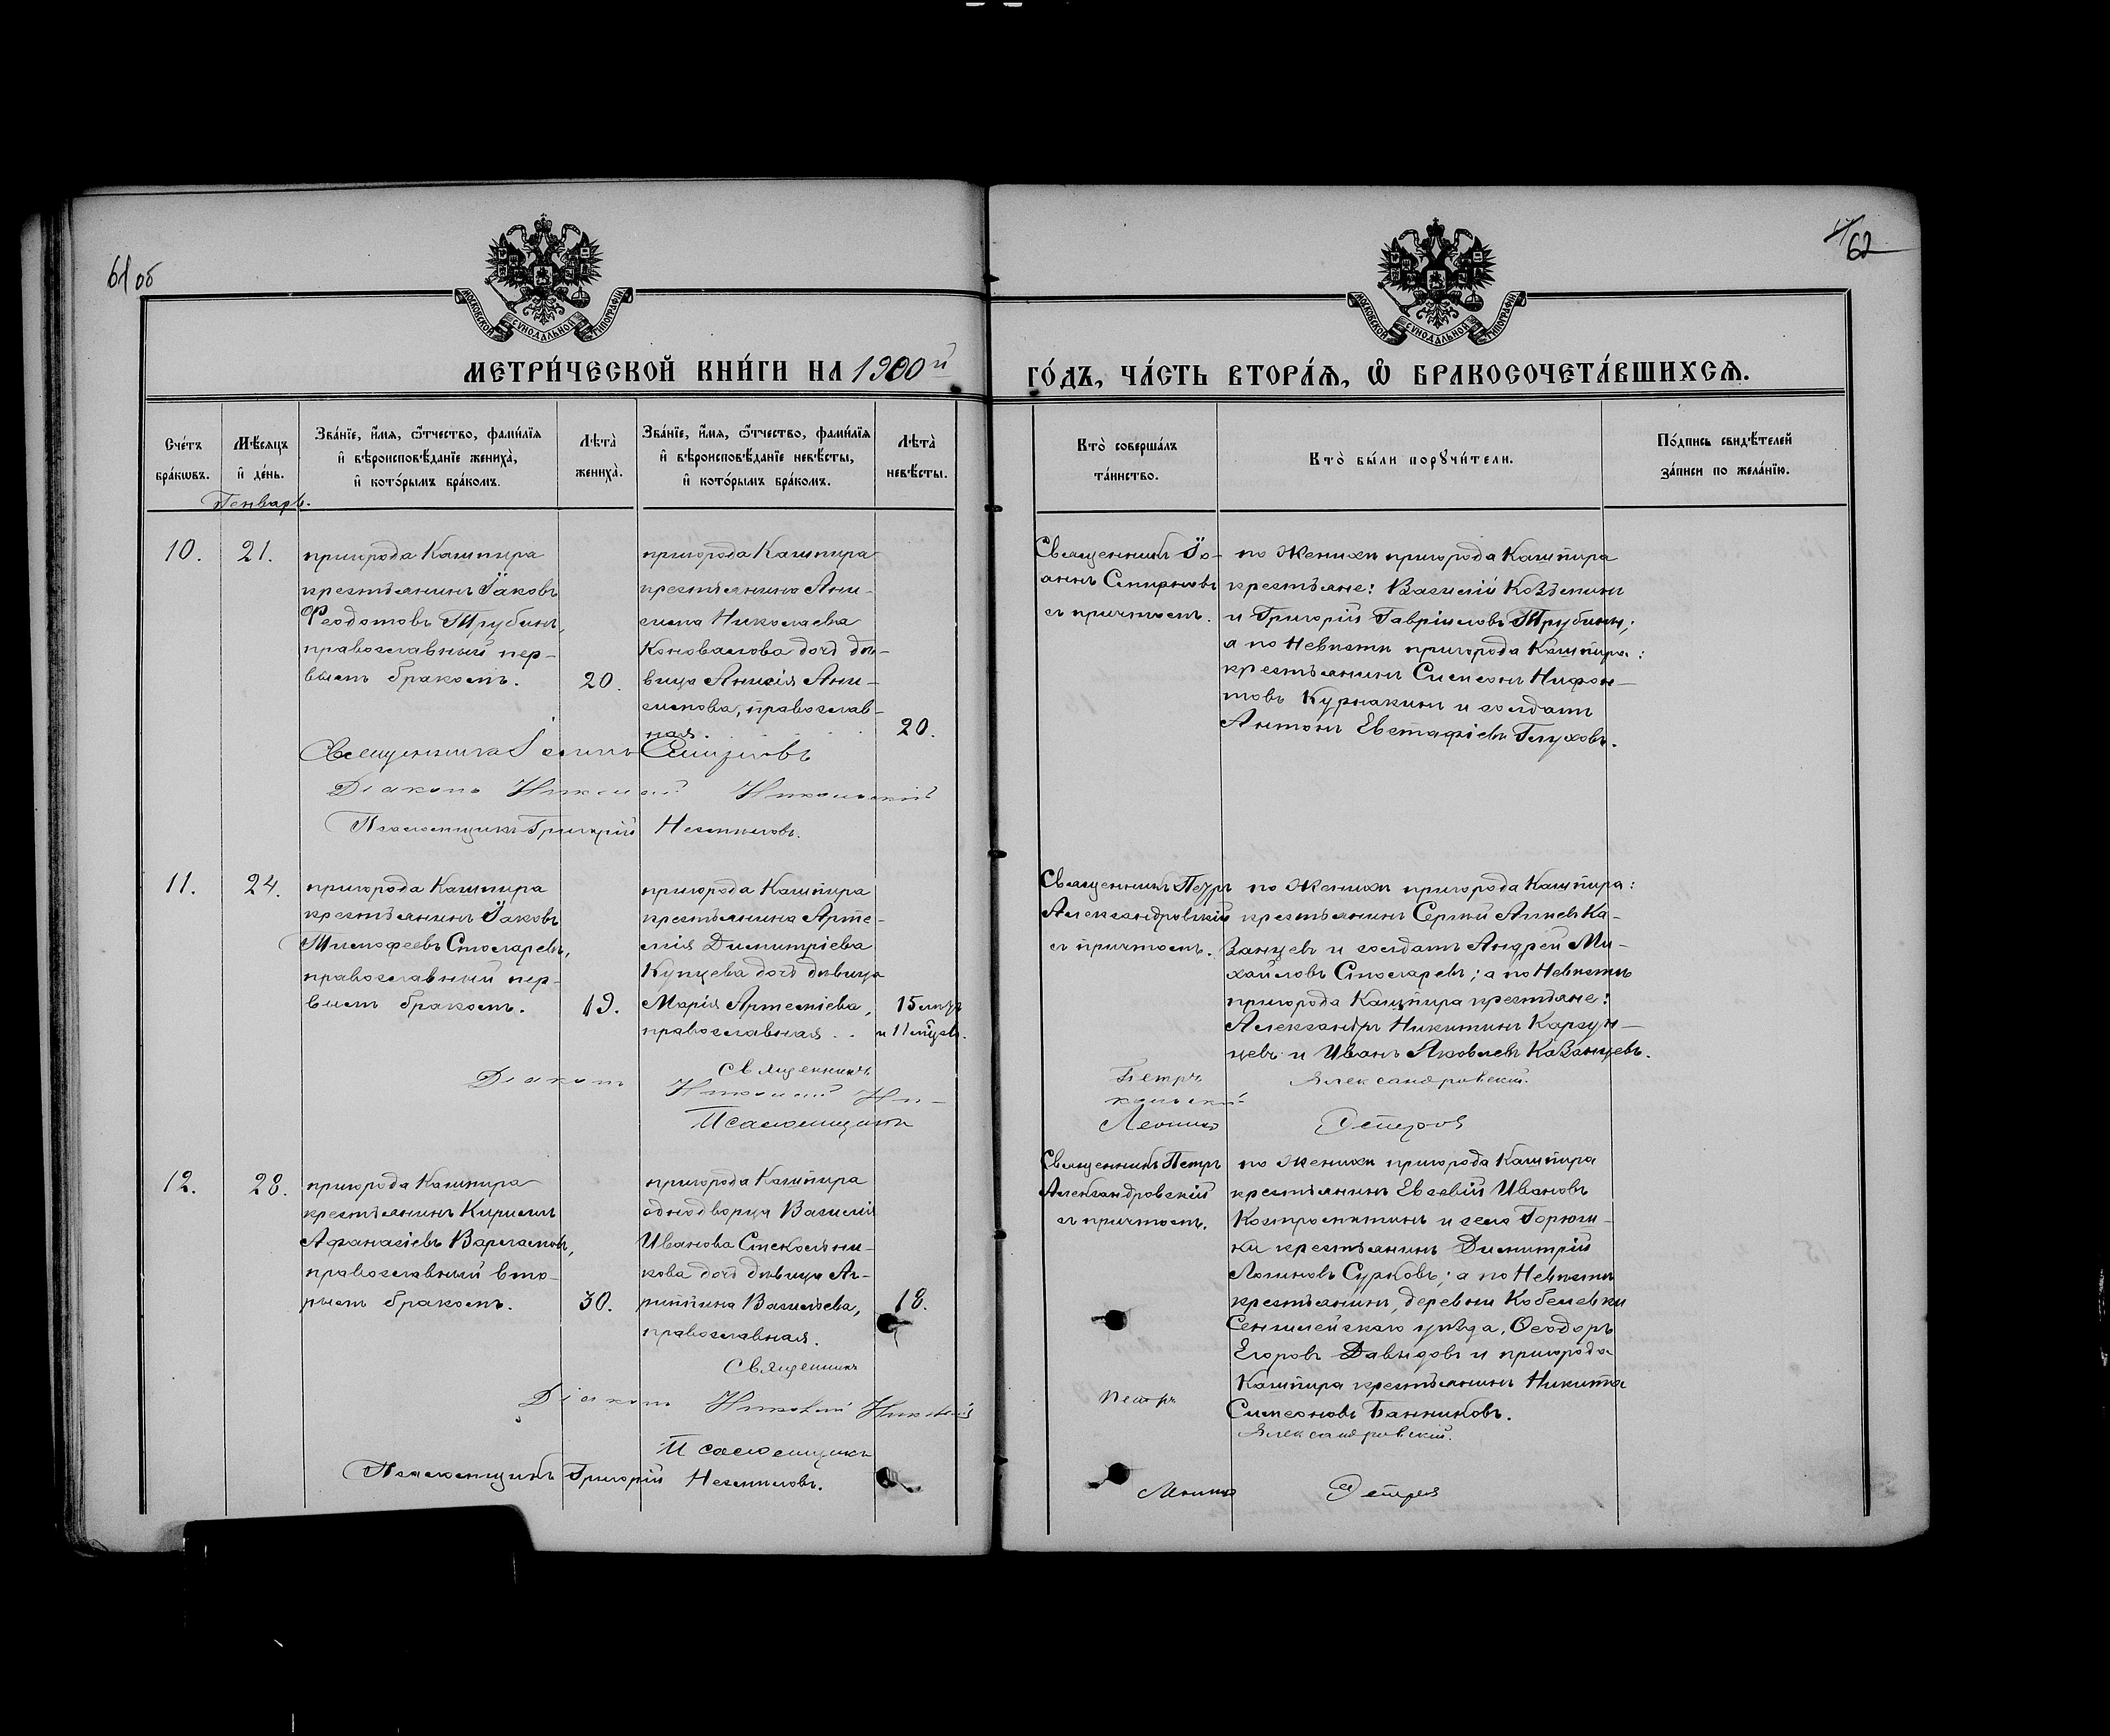 61 об
62
МОСКОВСКОЙ СУНОДАЛЬНОЙ ТИПОГРАФІИ
МОСКОВСКОЙ СУНОДАЛЬНОЙ ТИПОГРАФІИ
МЕТРИ́ЧЕСКОЙ КНИ́ГИ НА 1900й
ГО́ДЪ, ЧА́СТЬ ВТОРА́Ѧ, Ѽ БРАКОСОЧЕТА́ВШИХСѦ.
Сче́тъ
бра́кѡвъ.
Мѣ́сяцъ
и҆ де́нь.
Зва́нїе, и҆́мѧ, ѻ҆́тчество, фамі́лїѧ
и҆ вѣроисповѣ́данїе жениха̀,
и҆ кото́рымъ бра́комъ.
Лѣта̀
жениха̀.
Зва́нїе, и҆́мѧ, ѻ҆́тчество, фамі́лїѧ
и҆ вѣроисповѣ́данїе невѣ́сты,
и҆ кото́рымъ бра́комъ.
Лѣта̀
невѣ́сты.
Кто̀ соверша́лъ
та́инство.
Кто̀ бы́ли порꙋчи́тели.
По́дпись свидѣ́телей
за́писи по жела́нїю.
Генварь.
10.
21.
пригорода Кашпира
крестьянинъ Іаковъ
Феодотовъ Трубинъ,
православный пер-
вымъ бракомъ.
20.
пригорода Кашпира
крестьянина Ани-
сима Николаева
Коновалова дочь дѣ-
вица Анисія Ани-
симова, православ-
ная.
20.
Священникъ Іо-
аннъ Смирновъ
съ причтомъ.
по женихѣ пригорода Кашпира
крестьяне: Василій Козьминъ
и Григорій Гавріиловъ Трубины;
а по невѣстѣ пригорода Кашпира:
крестьянинъ Симеонъ Нифон-
товъ Курнакинъ и солдатъ
Антонъ Евстафіевъ Глуховъ.
Священникъ Іоаннъ Смирновъ
Діаконъ Николай Никольскій
Псаломщикъ Григорій Несмѣловъ.
11.
24.
пригорода Кашпира
крестьянинъ Іаковъ
Тимофеевъ Столяревъ,
православный пер-
вымъ бракомъ.
19.
пригорода Кашпира
крестьянина Арте-
мія Димитріева
Купцева дочь дѣвица
Марія Артеміева,
православная . .
15 лѣтъ
и 11 мѣсяц.
Священникъ Петръ
Александровскій
съ причтомъ.
по женихѣ пригорода Кашпира:
крестьянинъ Сергѣй Ка-
занцевъ и солдатъ Андрей Ми-
хайловъ Столяревъ; а по невѣстѣ
пригорода Кашпира крестьяне:
Александръ Никитинъ Каргун-
цевъ и Иванъ Яковлевъ Казанцевъ.
Священникъ Петръ Александровскій.
Діаконъ Николай Ни-кольскій
Псаломщикъ Леонидъ Петровъ
12.
28.
пригорода Кашпира
крестьянинъ Кириллъ
Афанасіевъ Варламовъ,
православный вто-
рымъ бракомъ.
30.
пригорода Кашпира
однодворца Василія
Иванова Стекольни-
кова дочь дѣвица Аг-
риппина Васильева,
православная.
18.
Священникъ Петръ
Александровскій
съ причтомъ.
по женихѣ пригорода Кашпира
крестьянинъ Евсевій Ивановъ
Костромитинъ и села Горюш-
ки крестьянинъ Димитрій
Логиновъ Сурковъ; а по невѣстѣ
крестьянинъ, деревни Кобелевки
Сенгилейскаго уѣзда, Ѳеодоръ
Егоровъ Давыдовъ и пригорода
Кашпира крестьянинъ Никита
Симеоновъ Банниковъ.
Священникъ Петръ Александровскій.
Діаконъ Николай Никольскій
Псаломщикъ Леонидъ Петровъ
Псаломщикъ Григорій Несмѣловъ.